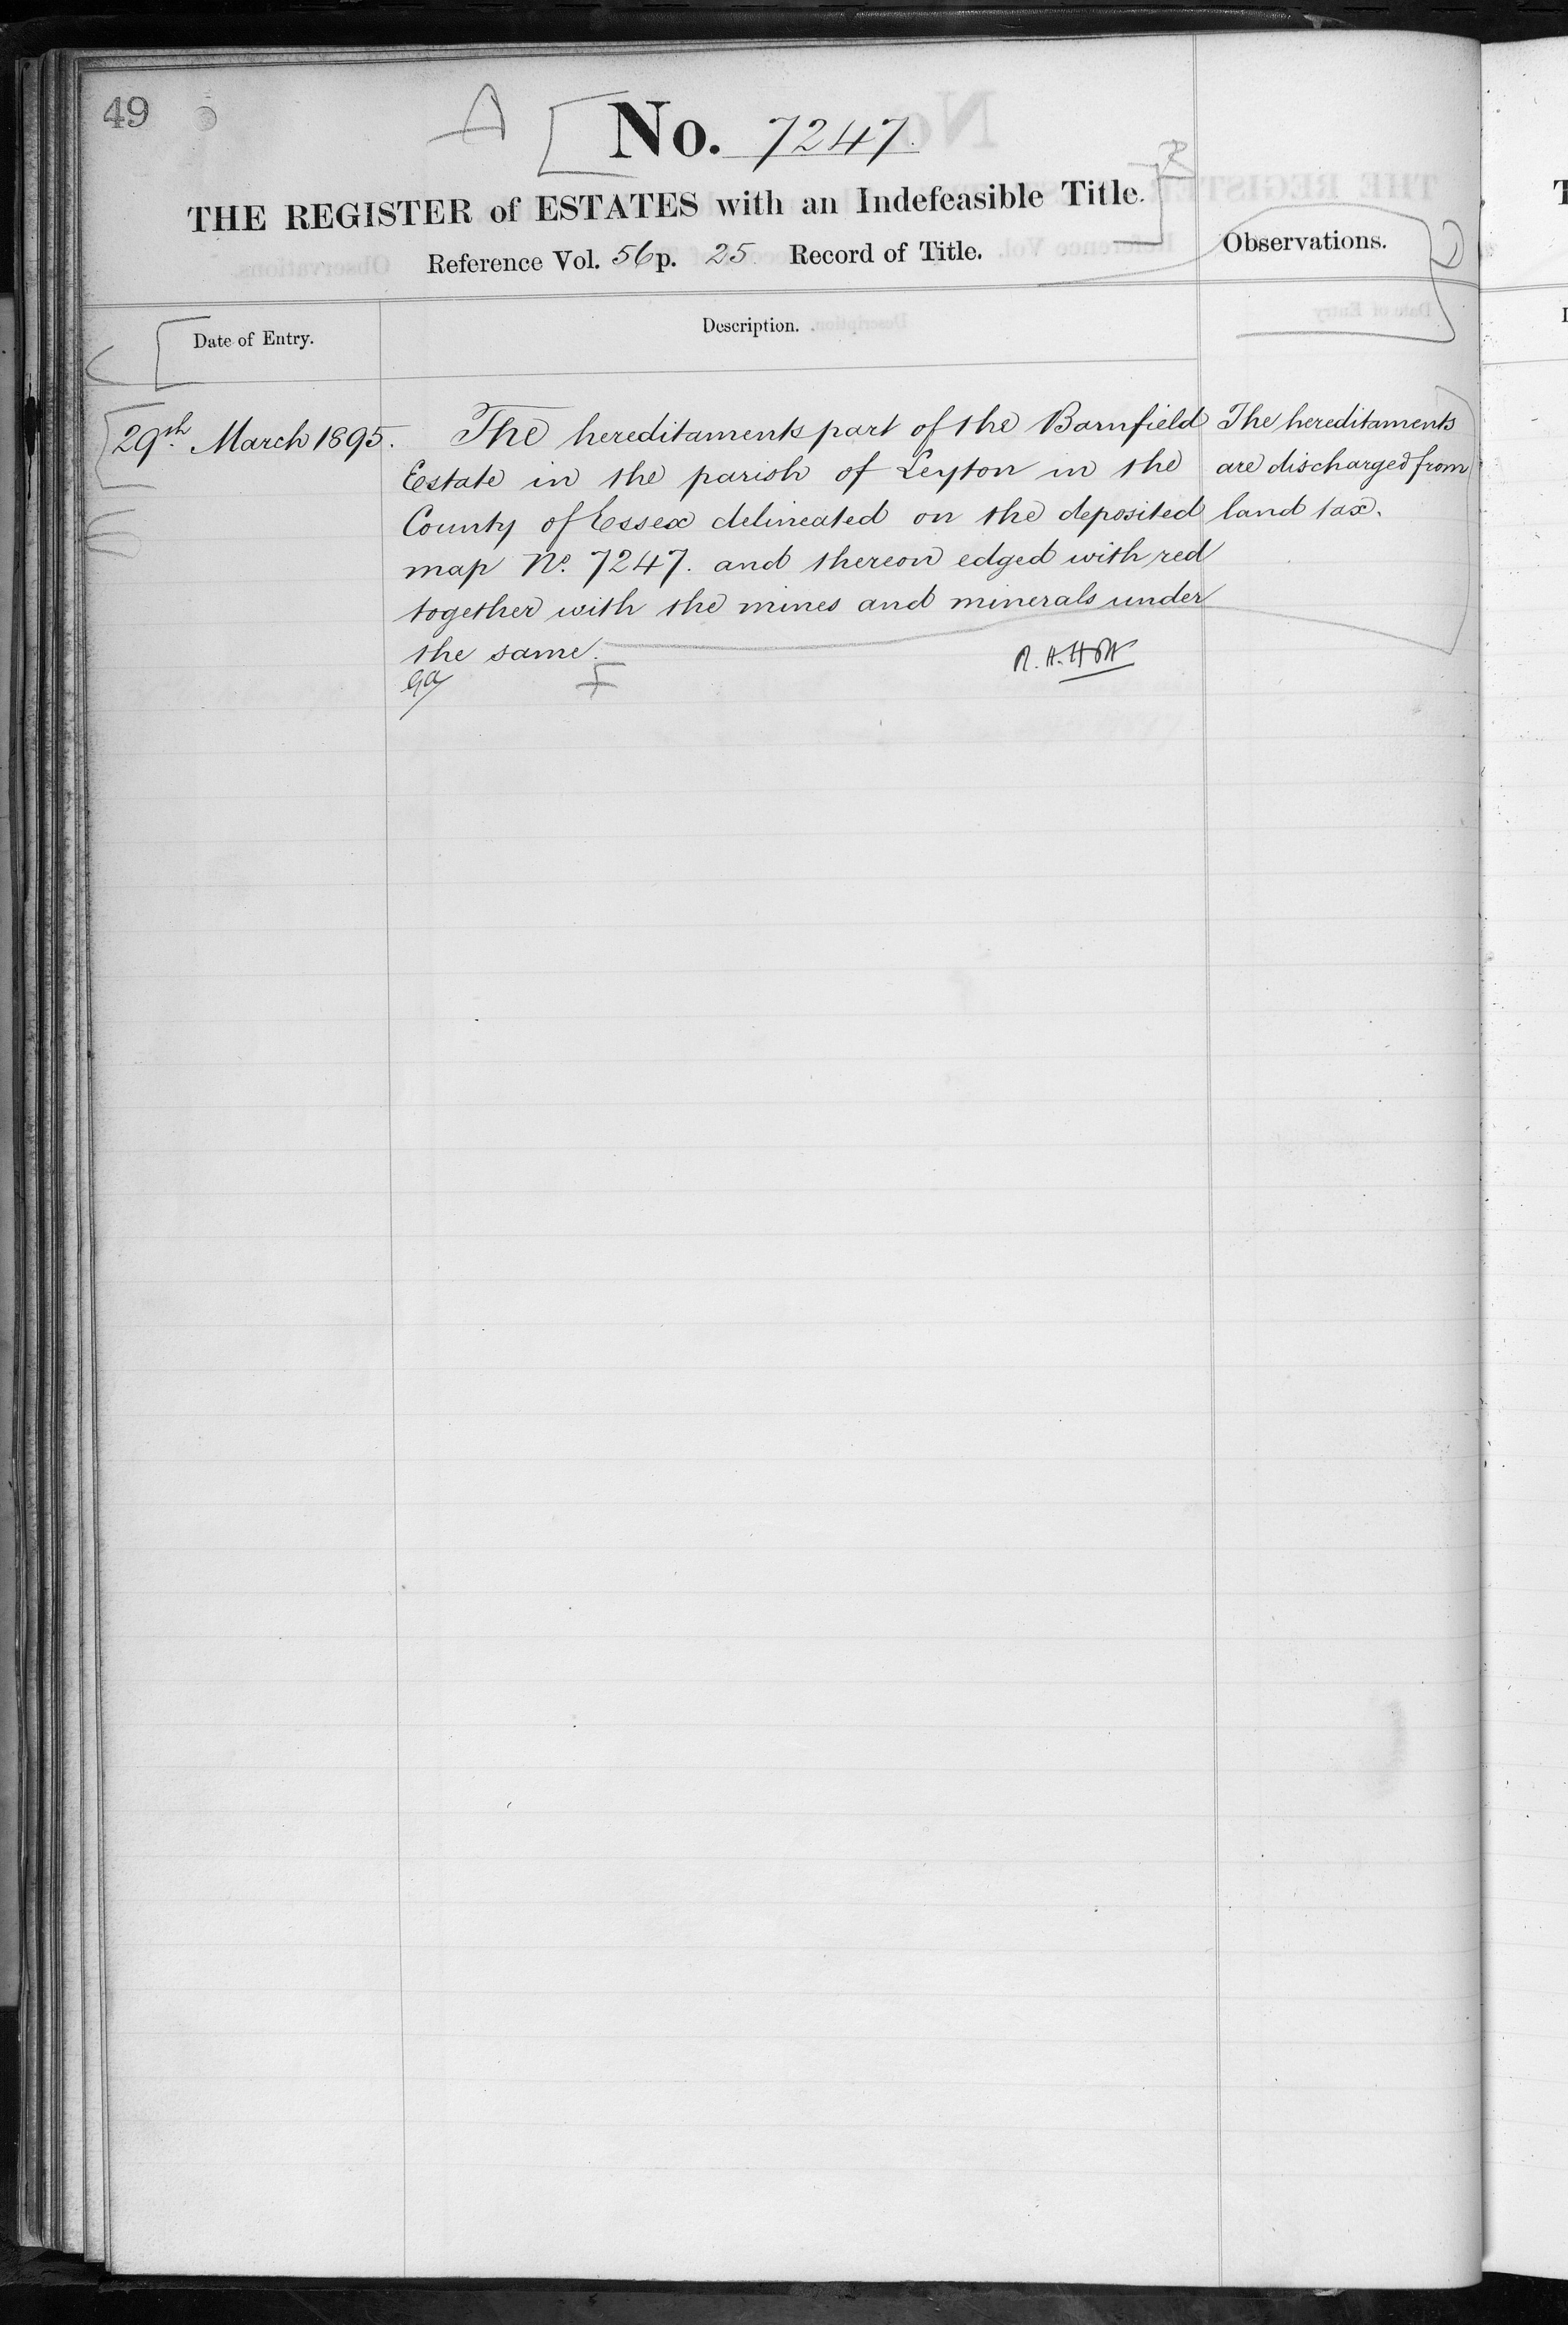 49
A
No. 7247.
THE REGISTER of ESTATES with an Indefeasible Title.
Reference Vol. 56 p. 25 Record of Title.
Observations.
Date of Entry.
Description.
29th March 1895.
The hereditaments part of the Barnfield
Estate in the parish of Leyton in the
County of Essex delineated on the deposited
map No. 7247. and thereon edged with red
together with the mines and minerals under
the same.
The hereditaments
are discharged from
land tax.